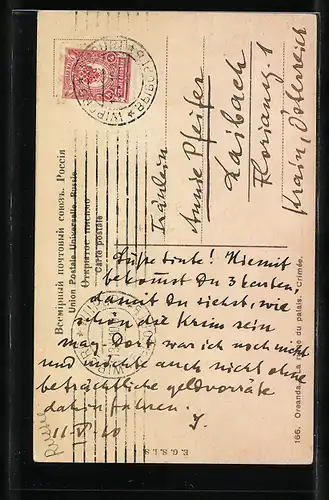 Всемірный почтовый союзъ. Россія
Union Postale Universelle. Russie
Открытое письмо
Carte postale
Fräulein
Annie Pfeifer
Laibach
Floriansg. 1
Krain, Österreich
Süsse tinte! Hiemit
bekommst Du 3 karten,
damit Du siehst, wie
schön die Krim sein
mag. Dort war ich noch nicht
und möchte auch nicht ohne
beträchtliche geldvorräte
dahinfahren.
J.
11-V-10
E. G. S. I. S.
166. Oreanda. La ruine du palais. Crimée.